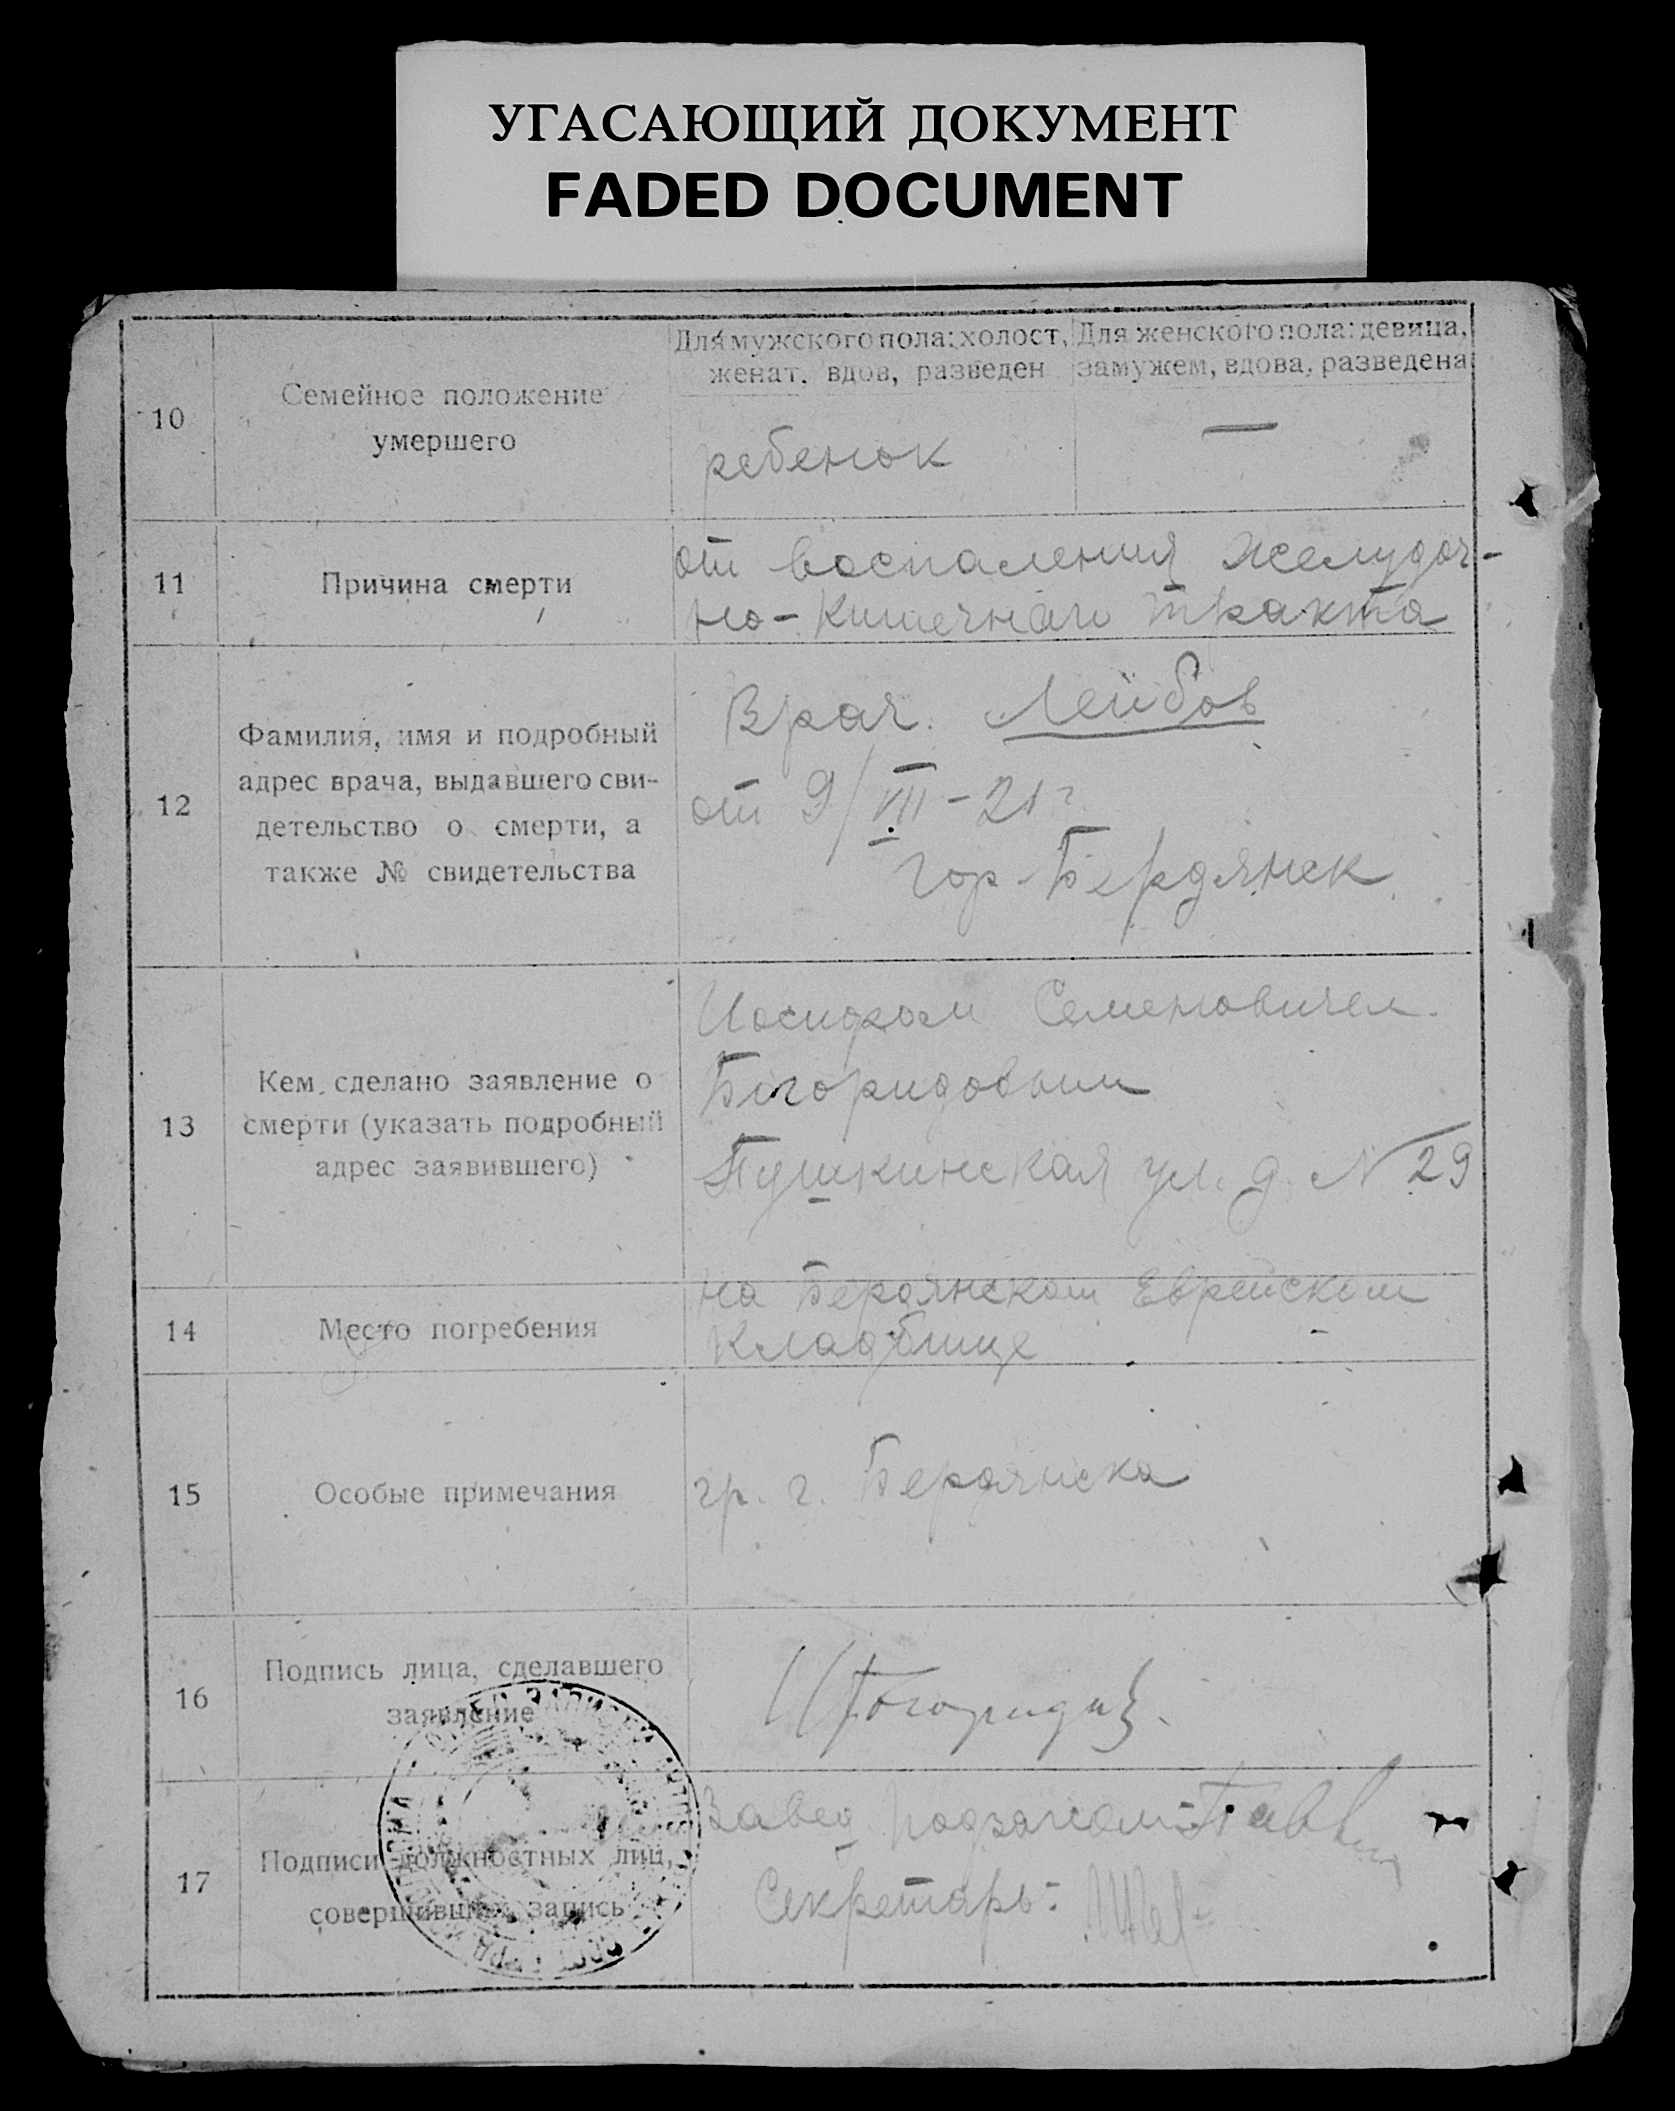 УГАСАЮЩИЙ ДОКУМЕНТ
FADED DOCUMENT
10
Семейное положение
умершего
Для мужского пола: холост,
женат, вдов, разведен
Для женского пола: девица,
замужем, вдова, разведена
ребенок
—
11
Причина смерти
от воспаления желудоч-
но-кишечного тракта
12
Фамилия, имя и подробный
адрес врача, выдавшего сви-
детельство о смерти, а
также № свидетельства
Врач. Лейбов
от 9/VIII-21г
гор. Бердянск
13
Кем сделано заявление о
смерти (указать подробный
адрес заявившего)
Иосифом Семеновичем
Богоридовым
Пушкинская ул. д. N 29
14
Место погребения
на Бердянском Еврейском
кладбище
15
Особые примечания
гр. г. Бердянска
16
Подпись лица, сделавшего
заявление
17
Подписи должностных лиц,
совершивших запись
Завед.
Секретарь: